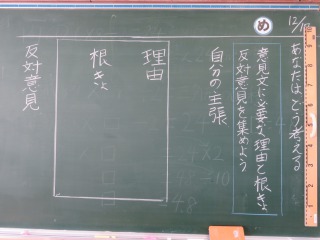 12/
あなたはどう考える
め
意見文に必要な理由と根きょ
反対意見を集めよう
自分の主張
理由
根きょ
反対意見